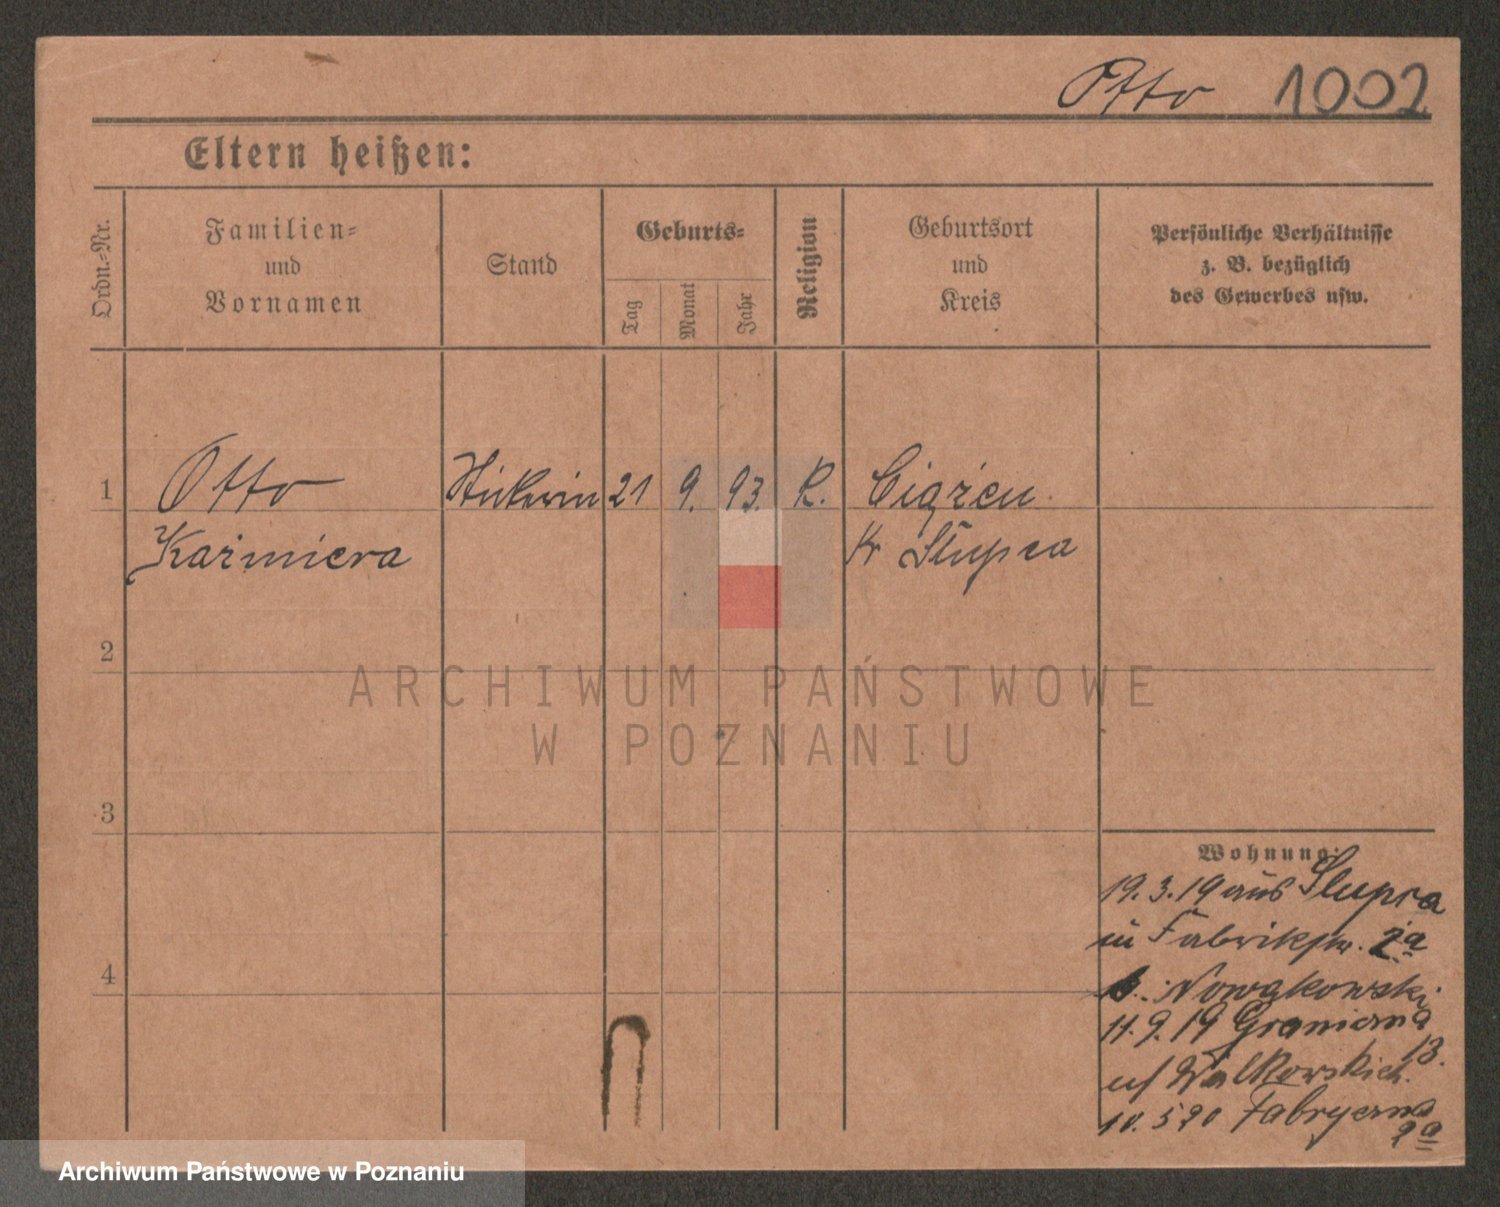 Otto 1002
Eltern heißen:
Ordn.-Nr.
Familien-
und
Vornamen
Stand
Geburts-
Tag
Monat
Jahr
Religion
Geburtsort
und
Kreis
Persönliche Verhältnisse
z. B. bezüglich
des Gewerbes usw.
1
Otto 21 9. 93. K. Ciążeń
Kaźmiera Kr Słupca
2
ARCHIWUM PAŃSTWOWE
W POZNANIU
3
Wohnung:
19.3.19 aus Slupca
in Fabrikstr. 2a
b. Nowakowski
4
11.9.19 Graniczna
13.
Walkowskich.
10.5 20 Fabryczna
Archiwum Państwowe w Poznaniu